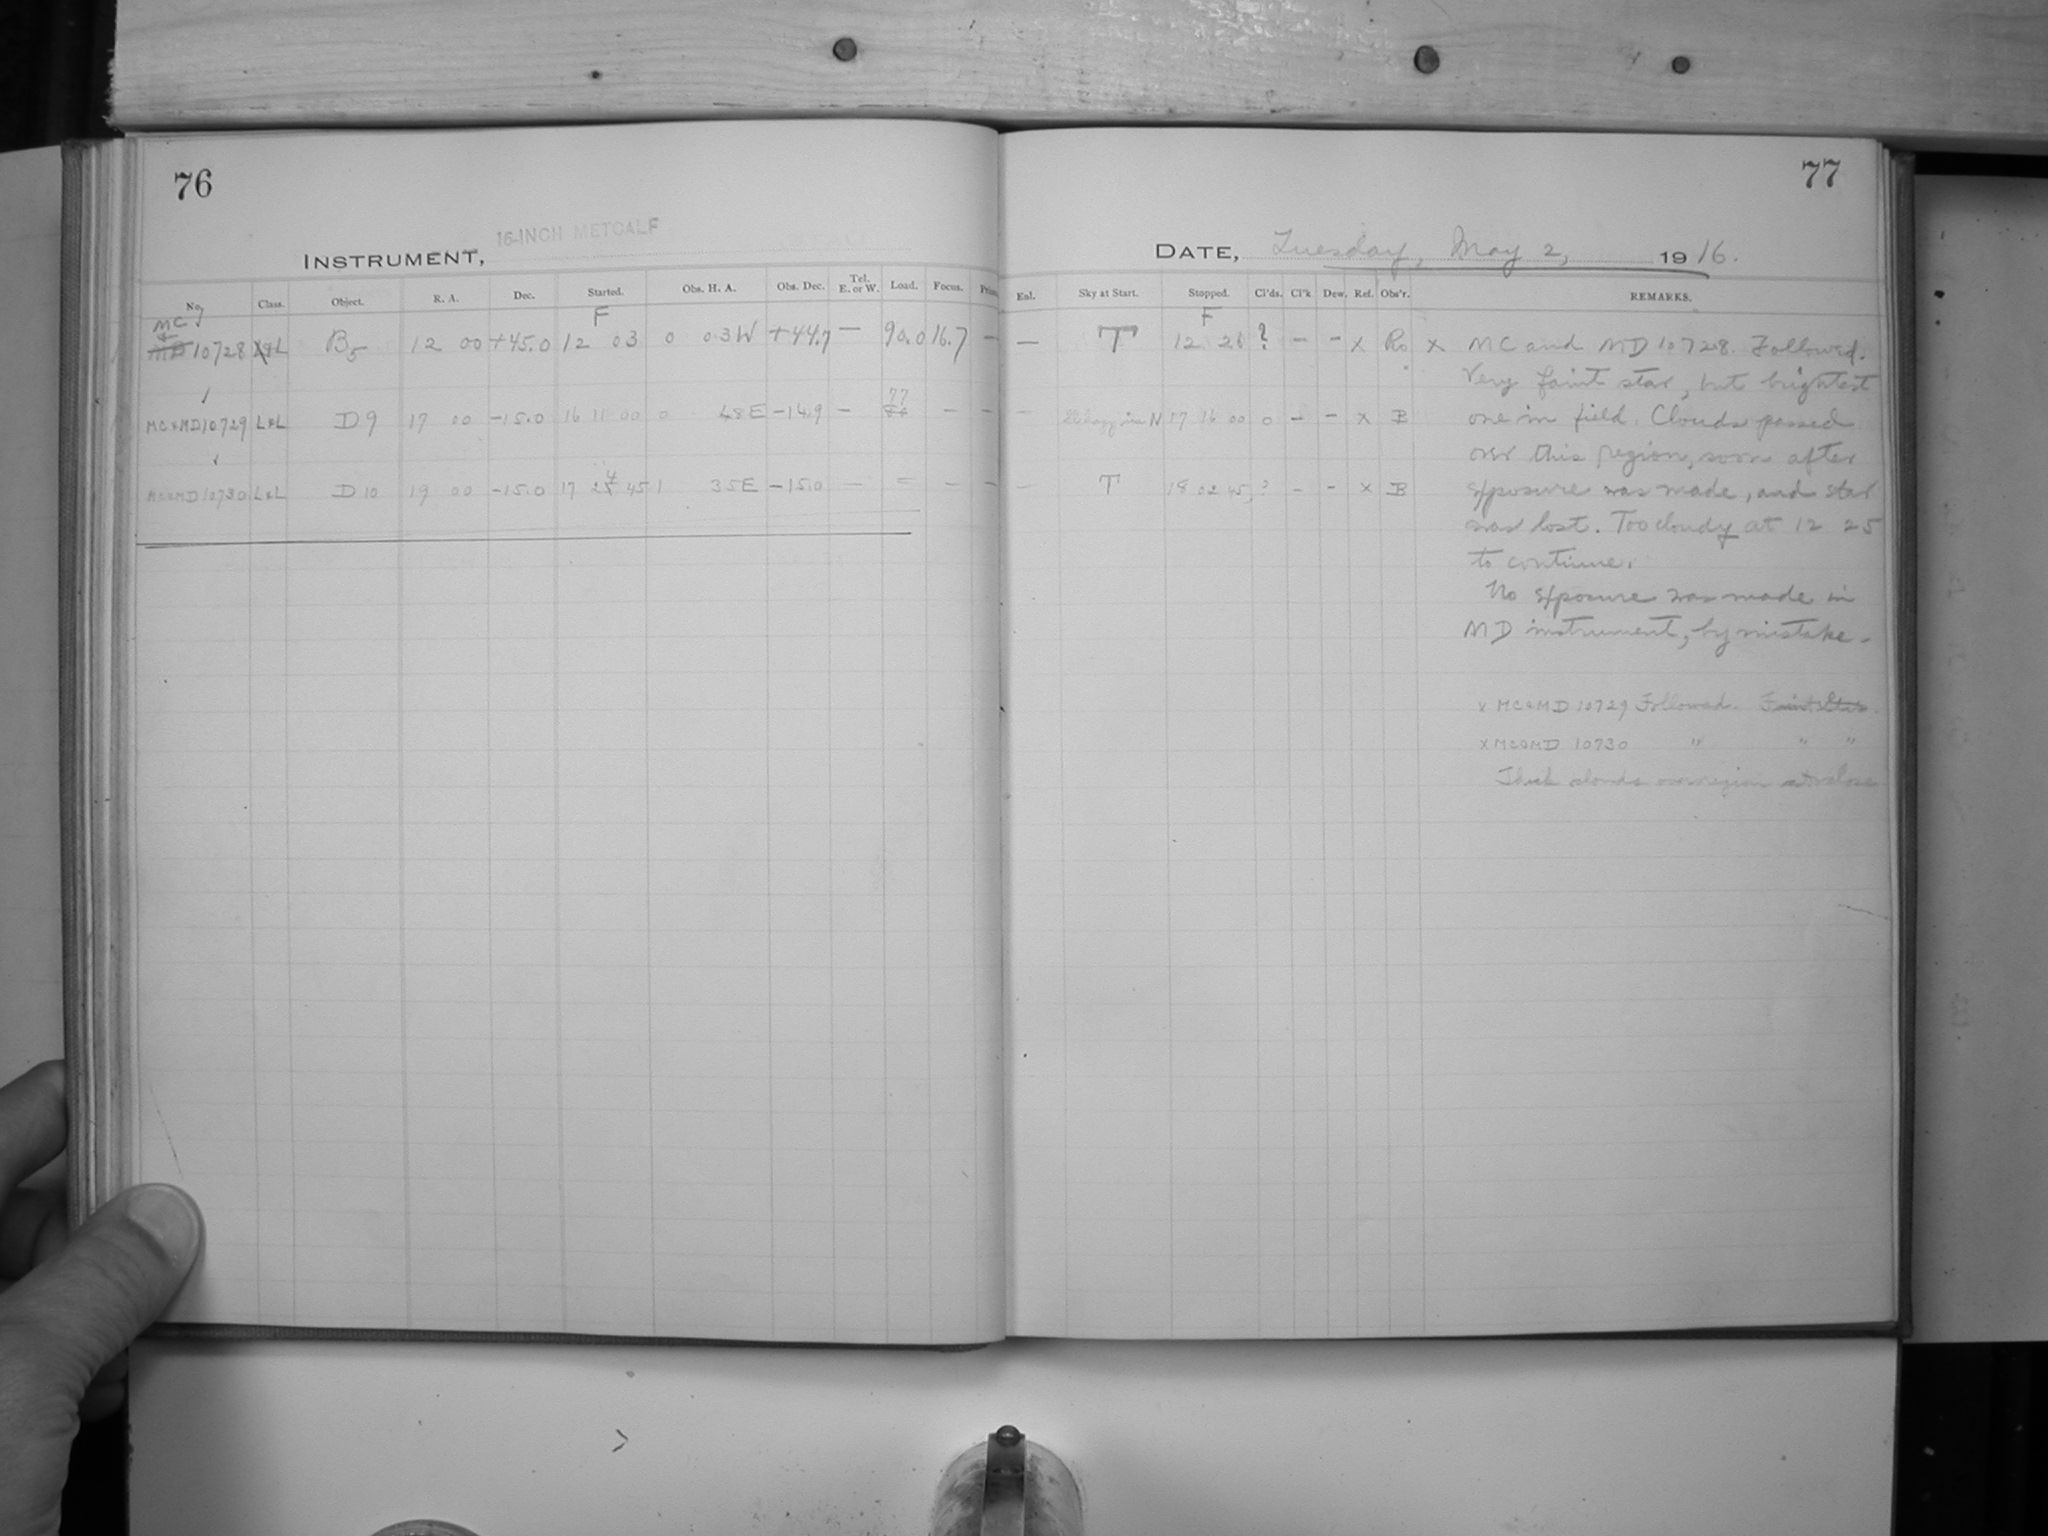 76
16-INCH METCALF
INSTRUMENT,
No. Class. Object. R. A. Dec. Started. Obs. H. A. Obs. Dec. Tel. E. or W. Load. Focus.
MC 10728 L B5 12 00 +45.0 F 12 03 0 03W +44.7 — 90.0 16.7 —
MC&MD10729 L&L D9 17 00 -15.0 16 11 00 0 48E -14.9 — 77 — —
MC&MD10730 L&L D10 19 00 -15.0 17 24 45 1 35E -15.0 — = — —
77
DATE, Tuesday, May 2, 1916.
Eal. Sky at Start. Stopped. Cl'ds. Cl'k Dew. Ref. Obs'r. REMARKS.
— T F 12 26 ? — — x Ro x MC and MD 10728. Followed.
Very faint star, but brightest
— N 17 16 00 0 — — x B one in field. Clouds passed
over this region, soon after
— T 18 02 45 ? — — x B exposure was made, and star
was lost. Too cloudy at 12 25
to continue.
No exposure was made in
MD instrument, by mistake.
x MC&MD 10729 Followed. Faint Star.
x MC&MD 10730 " " "
Thick clouds over region at close